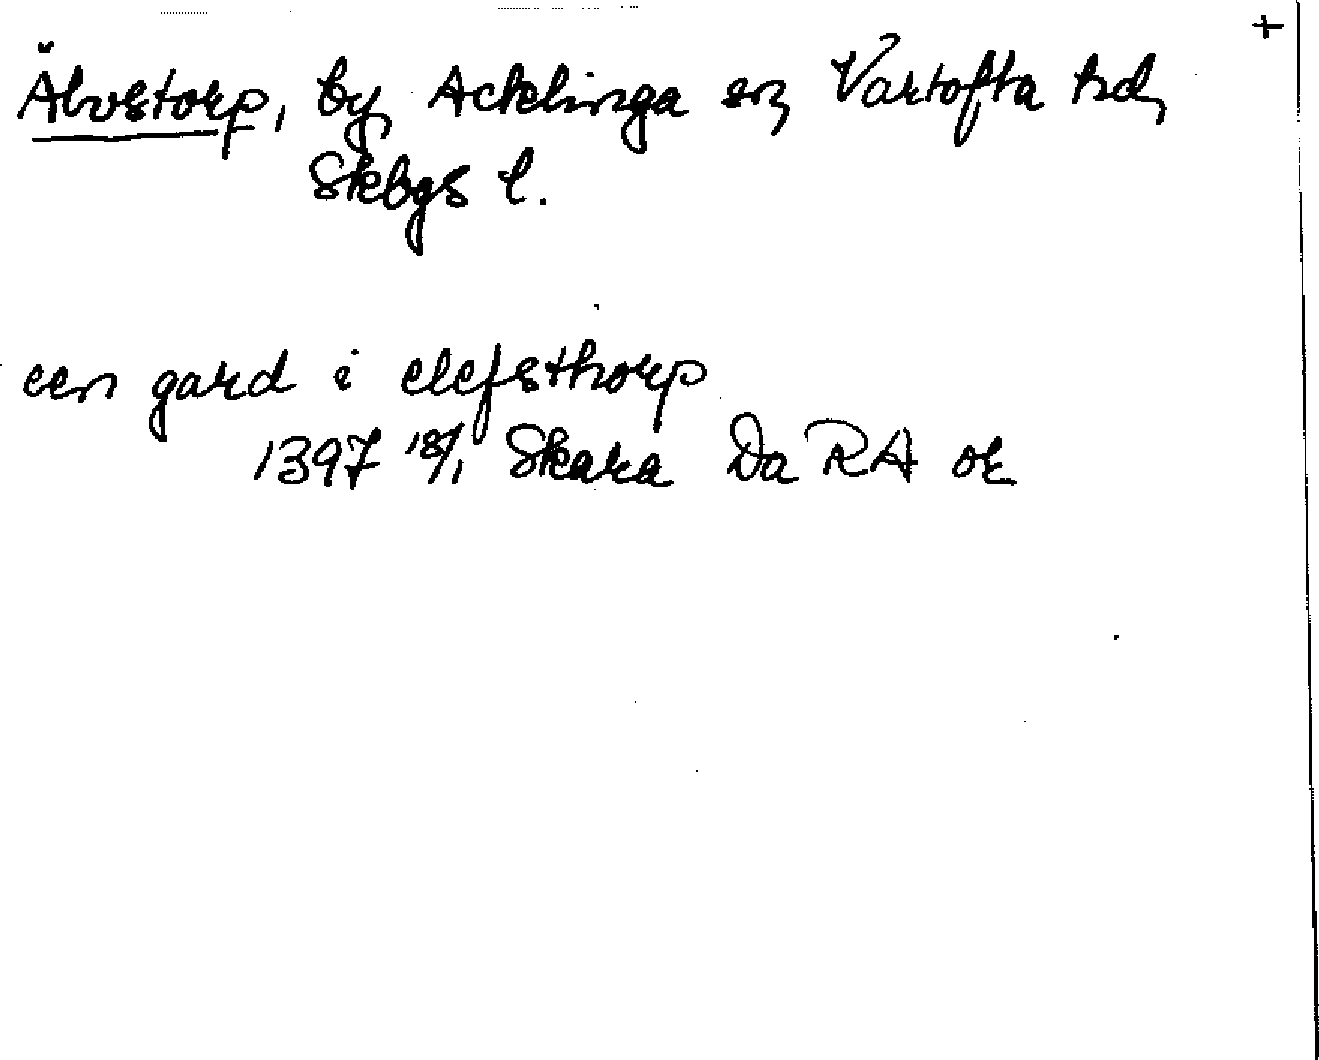 +
Älvstorp, by Acklinga sn, Vartofta hd,
Skbgs l.
een gard i elefsthorp
1397 18/1 Skara Da RA or